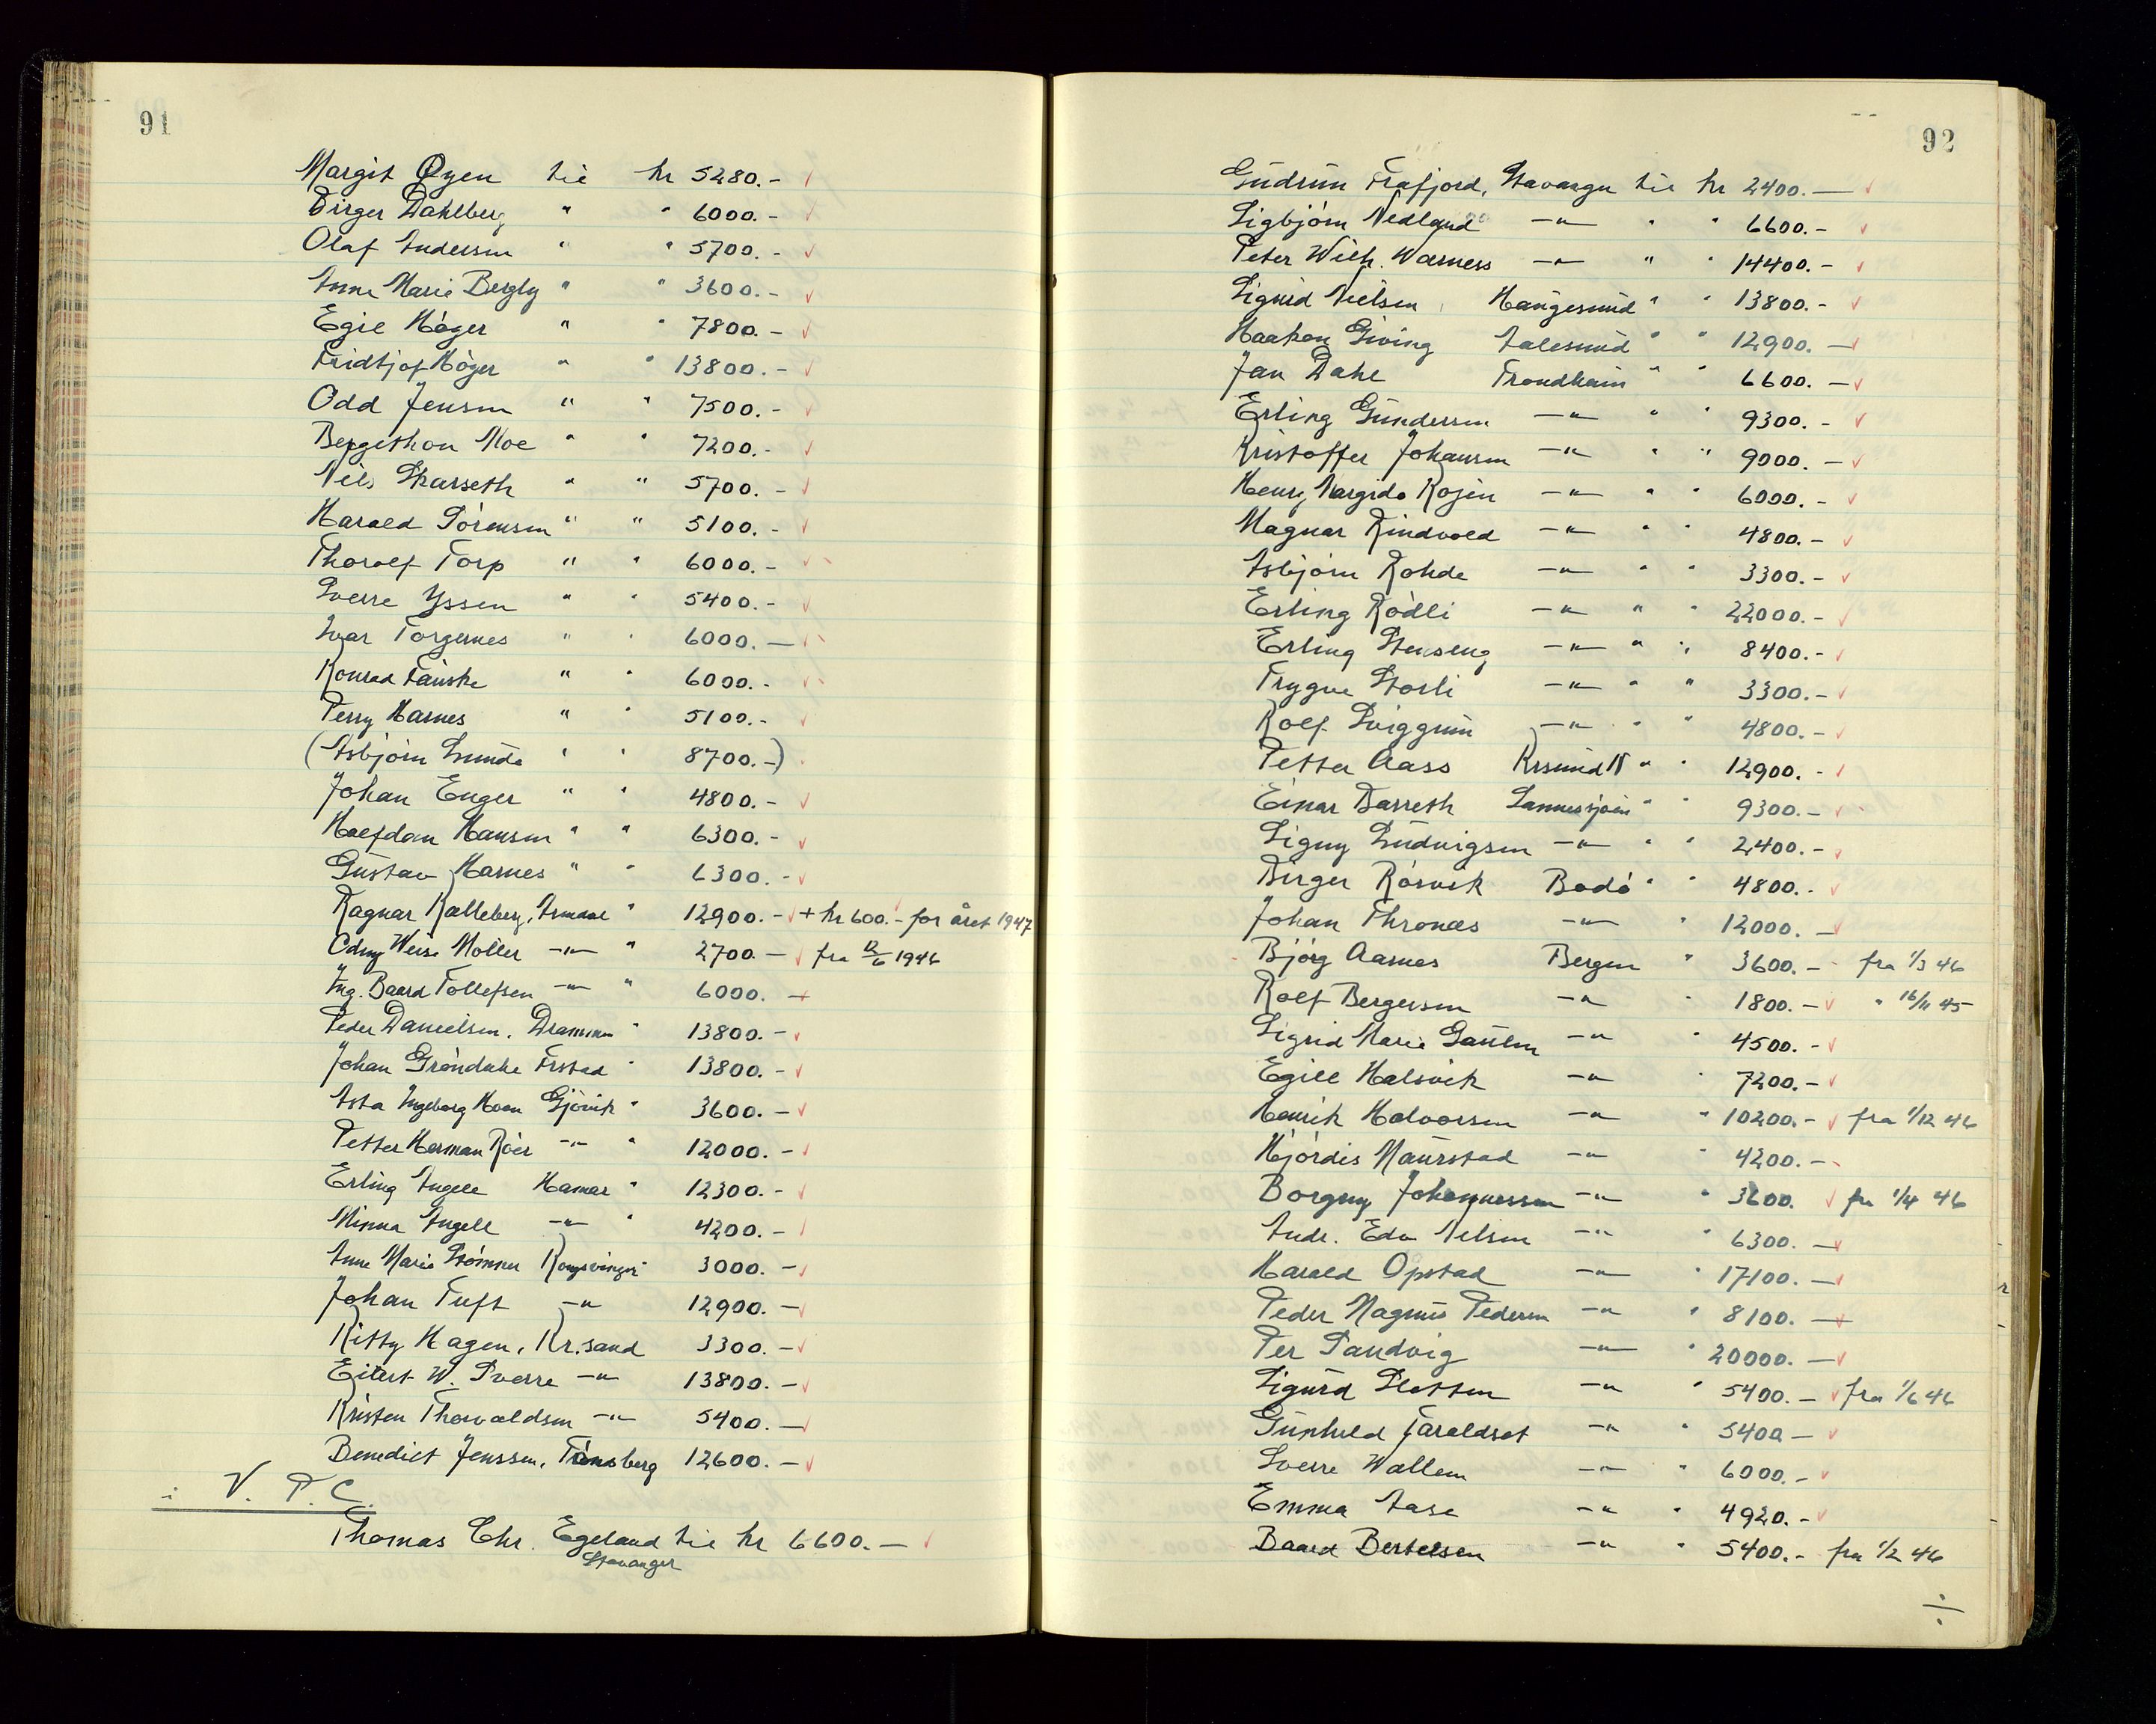 91
Margit Øyen til kr 5280.-
Birger Dahlberg " " 6000.-
Olaf Andersen " " 5700.-
Anne Marie Bergly " " 3600.-
Egil Höyer " " 7800.-
Fridtjof Höyer " " 13800.-
Odd Jensen " " 7500.-
Bergithon Moe " " 7200.-
Nils Skarseth " " 5700.-
Harald Sörensen " " 5100.-
Thorolf Torp " " 6000.-
Sverre Yssen " " 5400.-
Ivar Torgernes " " 6000.-
Konrad Fauske " " 6000.-
Perry Harnes " " 5100.-
(Asbjörn Lunde " " 8700.-)
Johan Enger " " 4800.-
Halfdan Hansen " " 6300.-
Gustav Harnes " " 6300.-
Ragnar Kalleberg, Arendal " 12900.- + kr 600.- for året 1947
Odny Weise Möller -"- " 2700.- fra 12/6 1946
Ing. Baard Tollefsen -"- " 6000.-
Peder Danielsen, Drammen " 13800.-
Johan Gröndahl Frstad " 13800.-
Asta Ingeborg Moen Gjövik " 3600.-
Petter Herman Röer -"- " 12000.-
Erling Angell Hamar " 12300.-
Minna Angell -"- " 4200.-
Anne Marie Strömner Kongsvinger " 3000.-
Johan Tuft -"- 12900.-
Kitty Hagen, Kr.sand 3300.-
Eilert W. Sverre -"- 13800.-
Kristen Thorvaldsen -"- 5400.-
Benedict Jenssen, Tönsberg 12600.-
V. P. C.
Thomas Chr. Egeland til kr 6600.-
Stavanger
92
Gudrun Frafjord, Stavanger til kr 2400.-
Sigbjörn Nedland -"- " " 6600.-
Peter Wilh. Warness -"- " " 14400.-
Sigurd Nielsen, Haugesund " " 13800.-
Haakon Giving Aalesund " " 12900.-
Jan Dahl Trondheim " " 6600.-
Erling Gundersen -"- " " 9300.-
Kristoffer Johansen -"- " " 9000.-
Henry Margido Rosen -"- " " 6000.-
Magnar Rindvold -"- " " 4800.-
Asbjörn Rohde -"- " " 3300.-
Erling Rödli -"- " " 22000.-
Erling Stenseng -"- " " 8400.-
Trygve Storli -"- " " 3300.-
Rolf Sviggum -"- " " 4800.-
Petter Aass Krsund N " " 12900.-
Einar Barreth Sannessjöen " " 9300.-
Signy Ludvigsen -"- " " 2400.-
Birger Rösvik Bodö " " 4800.-
Johan Thronæs -"- " 12000.-
Björg Aarnes Bergen " 3600.- fra 1/3 46
Rolf Bergersen -"- " 1800.- " 16/11 45
Sigrid Marie Gaulen -"- " 4500.-
Egill Halsvik -"- " 7200.-
Henrik Halvorsen -"- " 10200.- fra 1/12 46
Hjördis Maurstad -"- " 4200.-
Borgny Johannessen -"- " 3600. fra 1/4 46
Andr. Edv. Nelsen -"- " 6300.-
Harald Opstad -"- " 17100.-
Peder Magnus Pedersen -"- " 8100.-
Per Sandvig -"- " 20000.-
Sigurd Sletten -"- " 5400.- fra 1/6 46
Gunhild Taraldset -"- " 5400-
Sverre Wallem -"- " 6000.-
Emma Aase -"- " 4920.-
Baard Bertelsen -"- " 5400.- fra 1/2 46
÷